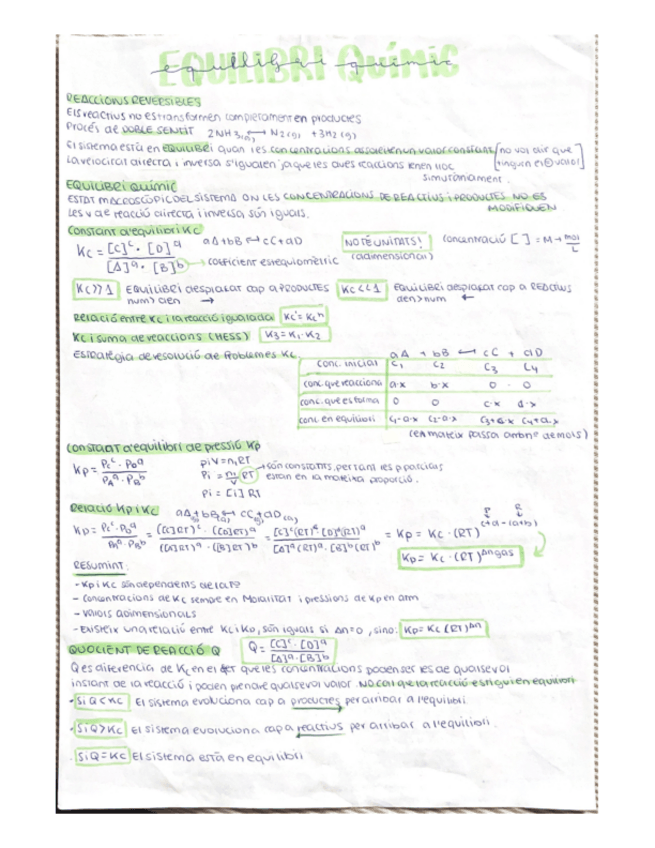 EQUILIBRI QUÍMIC
equilibri químic
REACCIONS REVERSIBLES
Els reactius no es transformen completament en productes
Procés de DOBLE SENTIT 2NH3(g) ⟷ N2(g) + 3H2(g)
El sistema està en EQUILIBRI quan les concentracions assoleixen un valor constant [no vol dir que
La velocitat directa i inversa s'igualen ja que les dues reaccions tenen lloc tinguin el = valor]
simultàniament.
EQUILIBRI QUÍMIC
ESTAT MACROSCÒPIC DEL SISTEMA ON LES CONCENTRACIONS DE REACTIUS I PRODUCTES NO ES
MODIFIQUEN
Les v de reacció directa i inversa, són iguals.
Constant d'equilibri Kc
Kc = [C]^c · [D]^d / [A]^a · [B]^b aA+bB ⟷ cC+dD NO TÉ UNITATS! Concentració [ ] = M → mol/L
→ coeficient estequiomètric (adimensional)
Kc>>1 EQUILIBRI desplaçat cap a PRODUCTES Kc<<1 Equilibri desplaçat cap a REACTIUS
num > den → den > num ←
Relació entre Kc i la reacció igualada Kc' = Kc^n
Kc i suma de reaccions (HESS) K3 = K1 · K2
Estratègia de resolució de Problemes Kc. aA + bB ⟷ cC + dD
conc. inicial C1 C2 C3 C4
conc. que reacciona a·x b·x 0 0
conc. que es forma 0 0 c·x d·x
conc. en equilibri C1-a·x C2-b·x C3+c·x C4+d·x
(el mateix passa amb nº de mols)
Constant d'equilibri de pressió Kp
Kp = Pc^c · PD^d / PA^a · PB^b
piV = niRT → són constants, per tant les p parcials
Pi = ni/V RT estan en la mateixa proporció.
Pi = [i] RT
Relació Kp i Kc aA(g) + bB(g) ⟷ cC(g) + dD(g) P R
c+d - (a+b)
Kp = Pc^c · PD^d / PA^a · PB^b = ([C]RT)^c · ([D]RT)^d / ([A]RT)^a · ([B]RT)^b = [C]^c (RT)^c · [D]^d (RT)^d / [A]^a (RT)^a · [B]^b (RT)^b = Kp = Kc · (RT)
Kp = Kc · (RT)^Δn gas
RESUMINT:
- Kp i Kc són dependents de la Tª
- Concentracions de Kc sempre en Molaritat i pressions de Kp en atm
- Valors adimensionals
- Existeix una relació entre Kc i Kp, són iguals si Δn=0, sino: Kp = Kc (RT)^Δn
QUOCIENT DE REACCIÓ Q Q = [C]^c · [D]^d / [A]^a · [B]^b
Q es diferencia de Kc en el fet que les concentracions poden ser les de qualsevol
instant de la reacció i poden prendre qualsevol valor. NO cal que la reacció estigui en equilibri
· Si Q<Kc El sistema evoluciona cap a productes per arribar a l'equilibri.
· Si Q>Kc El sistema evoluciona cap a reactius per arribar a l'equilibri.
· Si Q=Kc El sistema està en equilibri